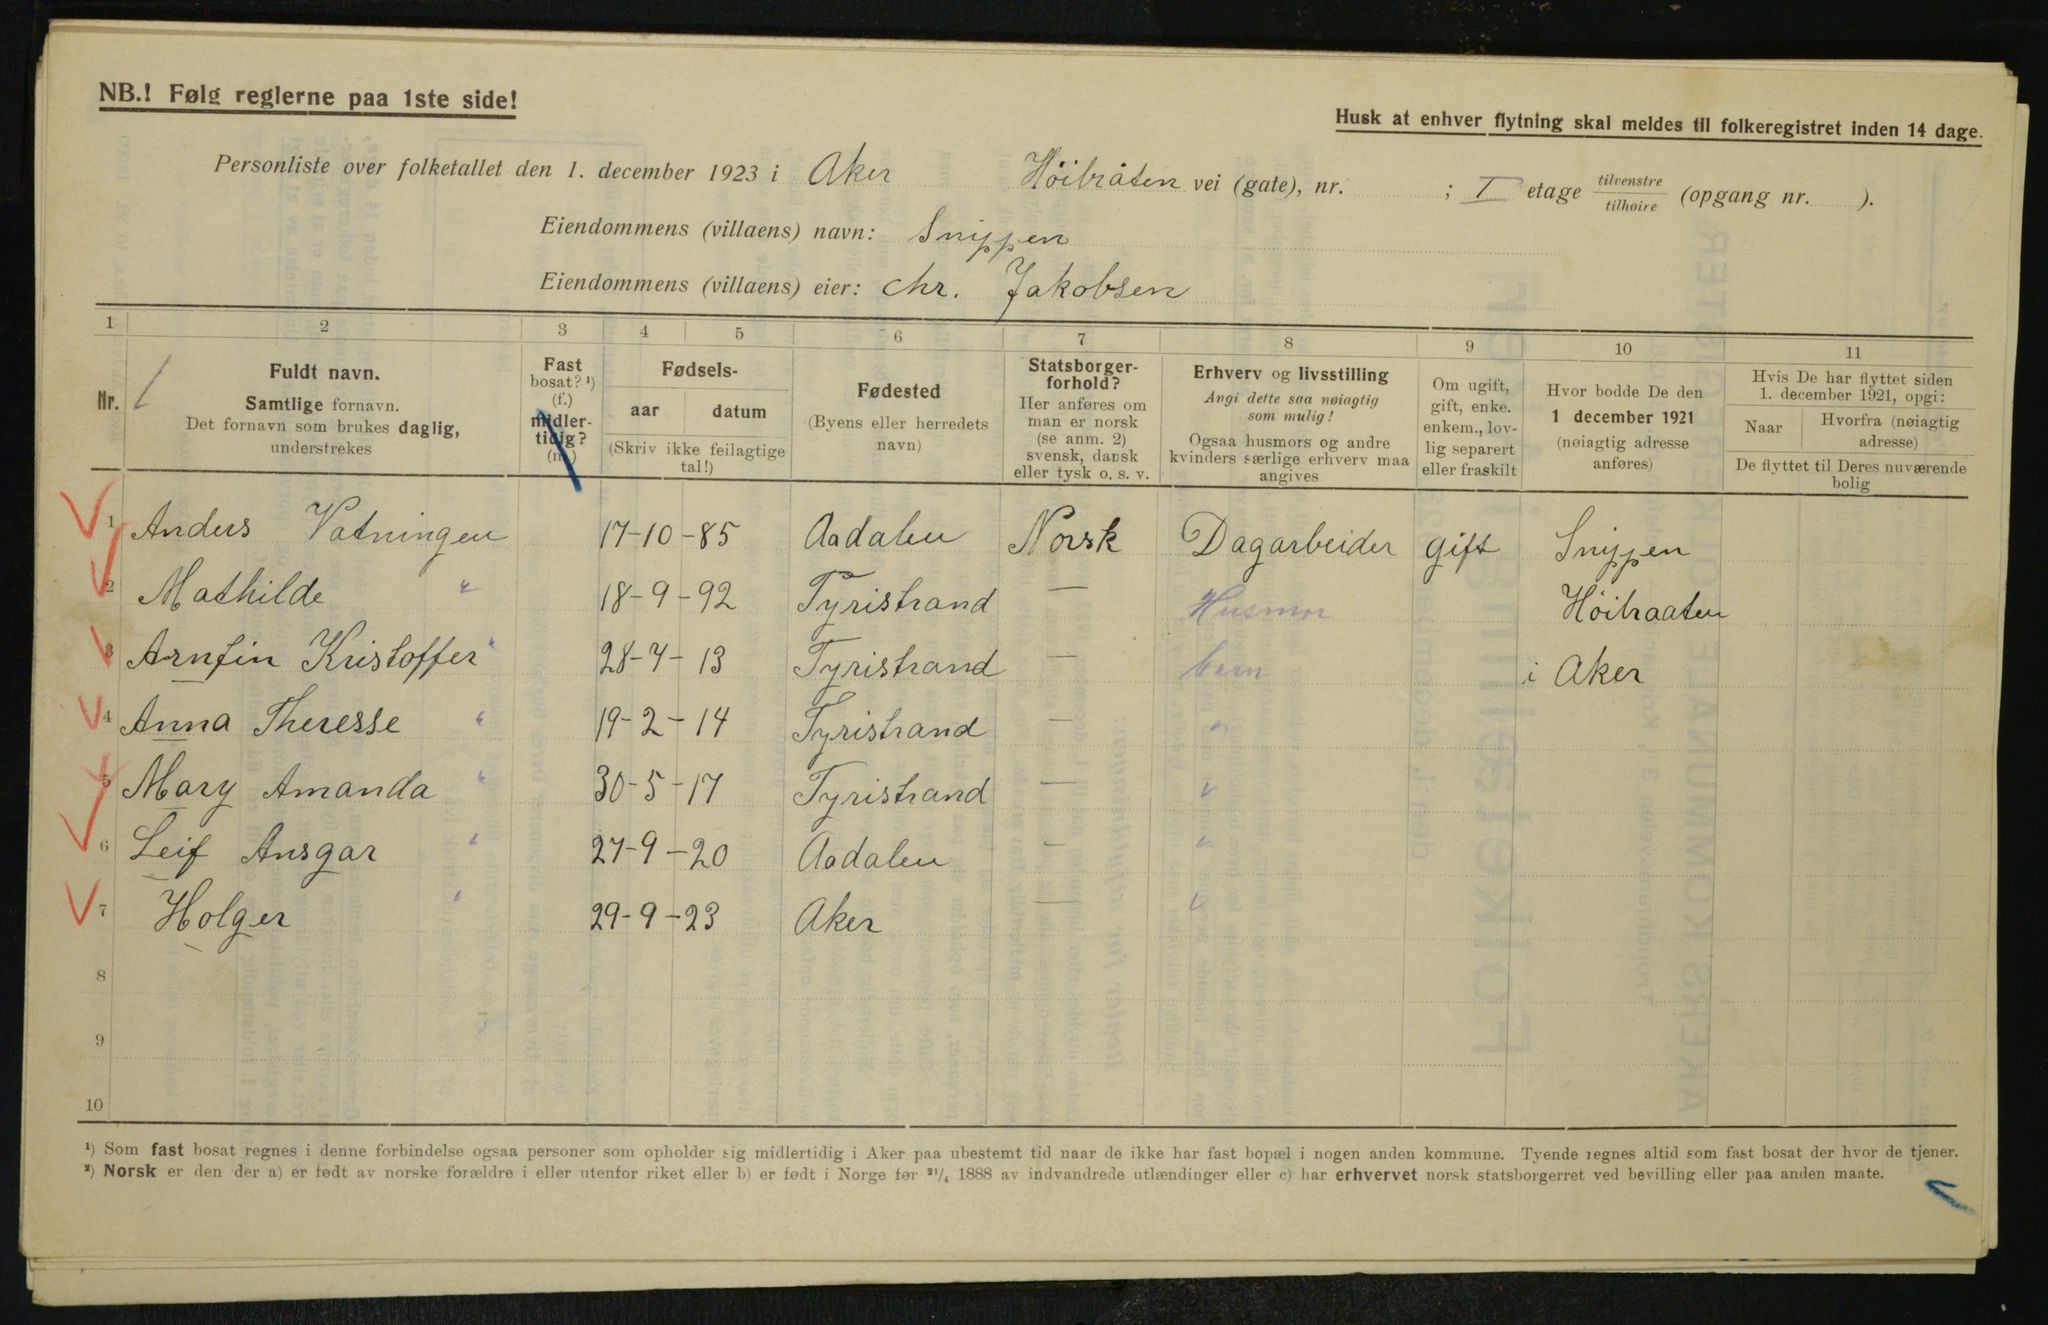 NB.! Følg reglerne paa 1ste side!
Husk at enhver flytning skal meldes til folkeregistret inden 14 dage.
Personliste over folketallet den 1. december 1923 i Aker Höibråten vei (gate), nr. ; I etage tilvenstre tilhøire (opgang nr. ).
Eiendommens (villaens) navn: Snippen
Eiendommens (villaens) eier: Chr. Jakobsen
1 2 3 4 5 6 7 8 9 10 11
Nr.
Fuldt navn.
Samtlige fornavn.
Det fornavn som brukes daglig,
understrekes
Fast
bosat? ¹)
(f.)
midler-
tidig?
(m.)
Fødsels-
aar datum
(Skriv ikke feilagtige
tal!)
Fødested
(Byens eller herredets
navn)
Statsborger-
forhold?
Her anføres om
man er norsk
(se anm. 2)
svensk, dansk
eller tysk o. s. v.
Erhverv og livsstilling
Angi dette saa nøiagtig
som mulig!
Ogsaa husmors og andre
kvinders særlige erhverv maa
angives
Om ugift,
gift, enke.
enkem., lov-
lig separert
eller fraskilt
Hvor bodde De den
1 december 1921
(nøiagtig adresse
anføres)
Hvis De har flyttet siden
1. december 1921, opgi:
Naar Hvorfra (nøiagtig
adresse)
De flyttet til Deres nuværende
bolig
1 Anders Vatningen 17-10-85 Aadalen Norsk Dagarbeider gift Snippen
2 Mathilde " 18-9-92 Tyristrand — Husmor Höibraaten
3 Arnfin Kristoffer " 28-4-13 Tyristrand — barn i Aker
4 Anna Theresse " 19-2-14 Tyristrand — "
5 Mary Amanda " 30-5-17 Tyristrand — "
6 Leif Ansgar " 27-9-20 Aadalen — "
7 Holger " 29-9-23 Aker — "
8
9
10
¹) Som fast bosat regnes i denne forbindelse ogsaa personer som opholder sig midlertidig i Aker paa ubestemt tid naar de ikke har fast bopæl i nogen anden kommune. Tyende regnes altid som fast bosat der hvor de tjener.
²) Norsk er den der a) er født av norske forældre i eller utenfor riket eller b) er født i Norge før ²¹/₄ 1888 av indvandrede utlændinger eller c) har erhvervet norsk statsborgerret ved bevilling eller paa anden maate.